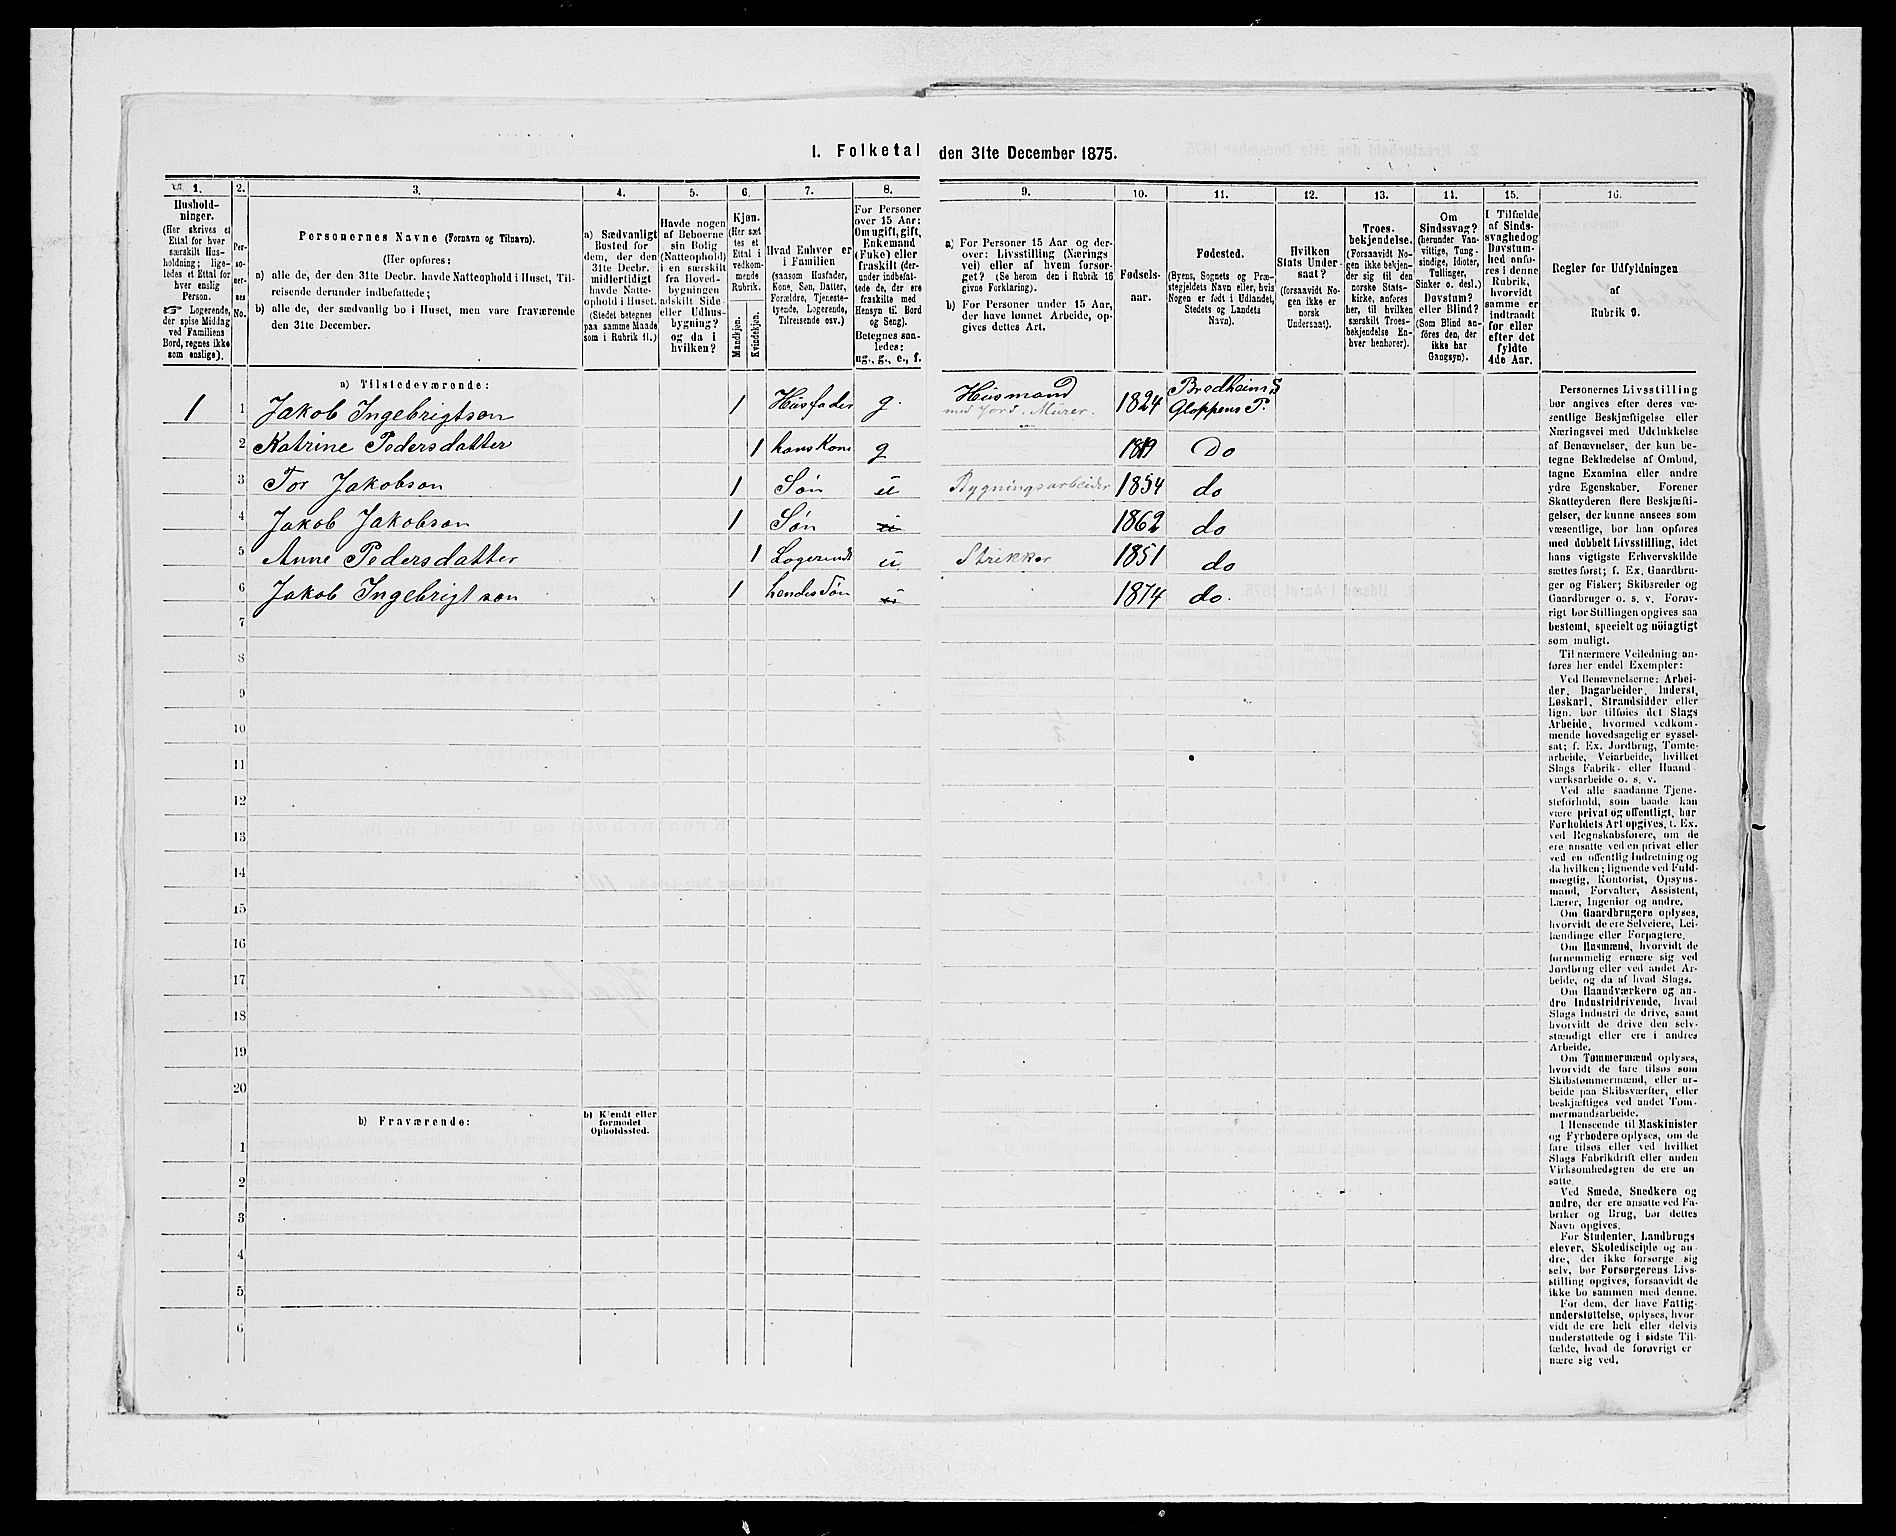 1. Folketal den 31te December 1875.
1.
Hushold-
ninger.
(Her skrives et
Ettal for hver
særskilt Hus-
holdning; lige-
ledes et Ettal for
hver enslig
Person.
☞ Logerende,
der spise Middag
ved Familiens
Bord, regnes ikke
som enslige).
2.
Per-
so-
ner-
nes
No.
3.
Personernes Navne (Fornavn og Tilnavn).
(Her opføres:
a) alle de, der den 31te Decbr. havde Natteophold i Huset, Til-
reisende derunder indbefattede;
b) alle de, der sædvanlig bo i Huset, men vare fraværende
den 31te December.
4.
a) Sædvanligt
Bosted for
dem, der den
31te Decbr.
midlertidigt
havde Natte-
ophold i Huset.
(Stedet betegnes
paa samme Maade
som i Rubrik 11.)
5.
Havde nogen
af Beboerne
sin Bolig
(Natteophold)
i en særskilt
fra Hoved-
bygningen
adskilt Side-
eller Udhus-
bygning?
og da i
hvilken?
6.
Kjøn.
(Her sæt
tes et
Ettal i
vedkom-
mende
Rubrik.
Mandkjøn.
Kvindekjøn.
7.
Hvad Enhver er
i Familien
(saasom Husfader,
Kone, Søn, Datter,
Forældre, Tjeneste-
tyende, Logerende,
Tilreisende osv.)
8.
For Personer
over 15 Aar:
Om ugift, gift,
Enkemand
(Enke) eller
fraskilt (der-
under indbefat-
tede de, der ere
fraskilte med
Hensyn til Bord
og Seng).
Betegnes saa-
ledes:
ug., g., e., f.
9.
a) For Personer 15 Aar og der-
over: Livsstilling (Nærings
vei) eller af hvem forsør-
get? (Se herom den i Rubrik 16
givne Forklaring).
b) For Personer under 15 Aar,
der have lønnet Arbeide, op-
gives dettes Art.
10.
Fødsels-
aar.
11.
Fødested.
(Byens, Sognets og Præ-
stegjeldets Navn eller, hvis
Nogen er født i Udlandet,
Stedets og Landets
Navn).
12.
Hvilken
Stats Under-
saat?
(forsaavidt No-
gen ikke er
norsk
Undersaat).
13.
Troes-
bekjendelse.
(Forsaavidt No-
gen ikke bekjen-
der sig til den
norske Stats-
kirke, anføres
her, til hvilken
særskilt Troes-
bekjendelse En-
hver henhører).
14.
Om
Sindssvag?
(herunder Van-
vittige, Tung-
sindige, Idioter,
Tullinger,
Sinker o. desl.)
Døvstum?
eller Blind?
(Som Blind an-
føres den, der
ikke har
Gangsyn).
15.
I Tilfælde
af Sinds-
svaghed og
Døvstum-
hed anfø-
res i denne
Rubrik,
hvorvidt
samme er
indtraadt
før eller
efter det
fyldte
4de Aar.
16.
Regler for Udfyldningen
af
Rubrik 9.
a) Tilstedeværende:
1 1 Jakob Ingebrigtson 1 Husfader g. Husmand med Jord. Murer. 1824 Bredheim S Gloppens P.
2 Katrine Pedersdatter 1 hans Kone g 1819 Do
3 Tor Jakobson 1 Søn u Bygningsarbeider 1854 do
4 Jakob Jakobson 1 Søn u 1862 do
5 Anne Pedersdatter 1 Logerende u Strikker 1851 do
6 Jakob Ingebrigtson 1 hendes Søn u 1874 do.
7
8
9
10
11
12
13
14
15
16
17
18
19
20
b) Fraværende:
b) Kjendt eller
formodet
Opholdssted.
1
2
3
4
5
6
Personernes Livsstilling
bør angives efter deres væ-
sentlige Beskjæftigelse eller
Næringsvei med Udelukkelse
af Benævnelser, der kun be-
tegne Beklædelse af Ombud,
tagne Examina eller andre
ydre Egenskaber. Forener
Skatteyderen flere Beskjæfti-
gelser, der kunne ansees som
væsentlige, bør han opføres
med dobbelt Livsstilling, idet
hans vigtigste Erhvervskilde
sættes først; f. Ex. Gaardbru-
ger og Fisker; Skibsreder og
Gaardbruger o. s. v. Forøv-
rigt bør Stillingen opgives saa
bestemt, specielt og nöiagtigt
som muligt.
Til nærmere Veiledning an-
føres her endel Exempler:
Ved Benævnelserne: Arbei-
der, Dagarbeider, Inderst,
Løskarl, Strandsidder eller
lign. bør tilføies det Slags
Arbeide, hvormed vedkom-
mende hovedsagelig er syssel-
sat; f. Ex. Jordbrug, Tomte-
arbeide, Veiarbeide, hvilket
Slags Fabrik- eller Haand-
værksarbeide o. s. v.
Ved alle saadanne Tjene-
steforhold, som baade kan
være privat og offentligt, bør
Forholdets Art opgives, f. Ex.
ved Regnskabsførere, om de
ere ansatte ved en privat eller
ved en offentlig Indretning og
da hvilken; lignende ved Fuld-
mægtig, Kontorist, Opsyns-
mand, Forvalter, Assistent,
Lærer, Ingeniør og andre.
Om Gaardbrugere oplyses,
hvorvidt de ere Selveiere, Lei-
lændinge eller Forpagtere.
Om Husmænd, hvorvidt de
fornemmelig ernære sig ved
Jordbrug eller ved andet Ar-
beide, og da af hvad Slags.
Om Haandværkere og an-
dre Industridrivende, hvad
Slags Industri de drive, samt
hvorvidt de drive den selv-
stændigt eller ere i andres
Arbeide.
Om Tømmermænd oplyses,
hvorvidt de fare tilsøs som
Skibstømmermænd, eller ar-
beide paa Skibsværfter, eller
beskjæftiges ved andet Tøm-
mermandsarbeide.
I Henseende til Maskinister
og Fyrbødere oplyses, om de
fare tilsøs eller ved hvilket
Slags Fabrikdrift eller anden
Virksomhedsgren de ere an-
satte.
Ved Smede, Snedkere og
andre, der ere ansatte ved Fa-
briker og Brug, bør dettes
Navn opgives.
For Studenter, Landbrugs
elever, Skoledisciple og an-
dre, der ikke forsørge sig
selv, bør Forsørgerens Livs-
stilling opgives, forsaavidt de
ikke bo sammen med denne.
For dem, der have Fattig-
understøttelse, oplyses, hvor-
vidt de ere helt eller delvis
understøttede og i sidste Til-
fælde, hvad de forøvrigt er
nære sig ved.